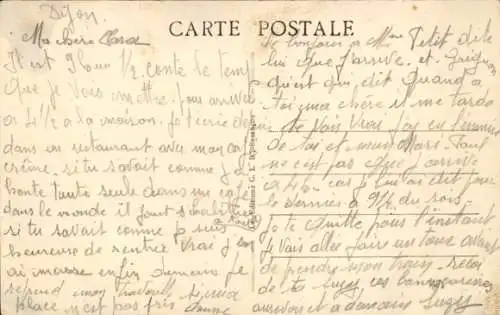 Dijon
CARTE POSTALE
Ma chère Clara
Il est 9 heur 1/2 conte le temp
que je vais mettre pour arriver
a 4 1/2 a la maison. Je t'ecrie
dans un restaurant avec mon café
crême. si tu savait comme j'ai
honte toute seule dans un café
dans le monde il faut s'habituer
si tu savait comme je suis
heureuse de rentrée vrai j'en
ai marre enfin demain Je
reprend mon travail si ma
place n'est pas pris donne
le bonjour a Mme Petit dit
lui que j'arrive. et
qu'est qui dit quand a
toi ma chère il me tarde
de vais vrai j'ai
de toi et mon Mart. Paul
ne c'est pas que j'arrive
a 4h car j'lui ai dit pour
le dernier a 9h du soir
Je te quitte pour l'instant
Je vais aller faire un tour avant
de prendre mon train. recoi
de ta Suzy ces
aurevoir et a demain Suzy